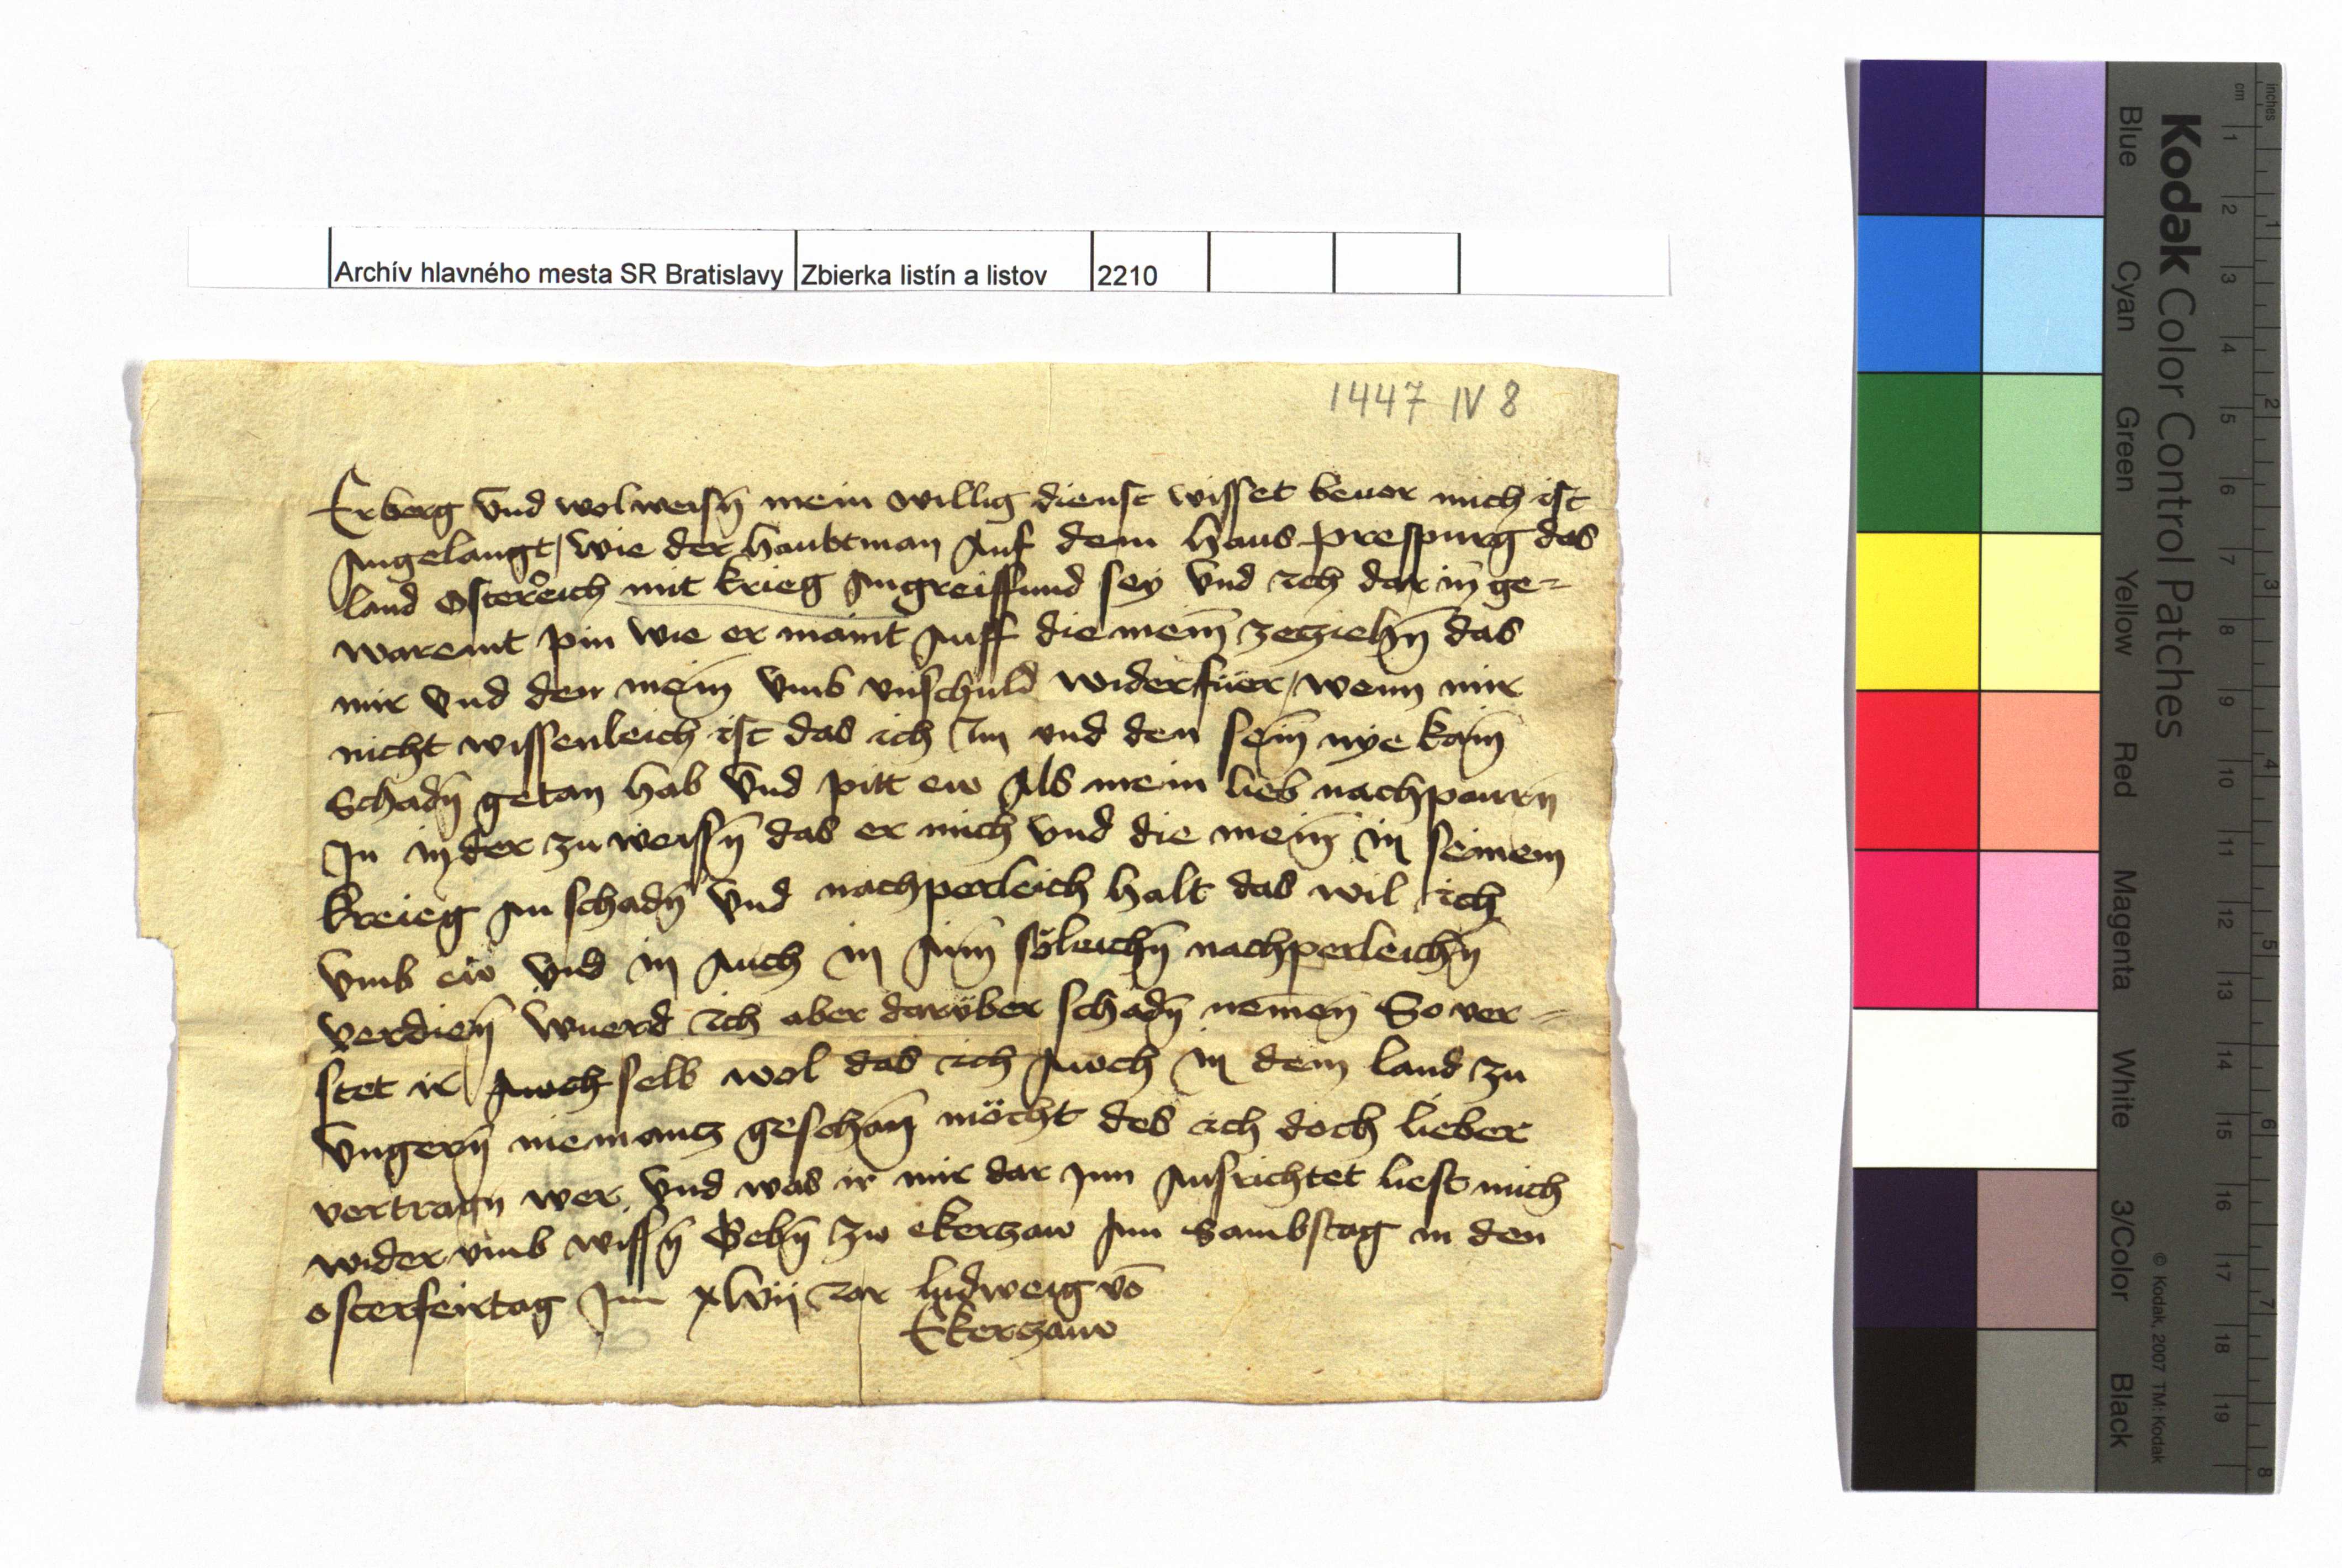 Archív hlavného mesta SR Bratislavy Zbierka listín a listov 2210
1447 IV 8
Erberg vnd wolweisn̄ mein willig dienst wisset beuor mich ist
Angelangt / wie der haubtman Auf dem haus prespurg das
land Osterreich mit krieg Angreiffund sey vnd ich dar in ge=
waremt pin wie er maint Auff die mein̄ zeziehn̄ das
mir vnd den mein̄ vmb vnschuld widerfuer / wenn mir
nicht wissenleich ist das ich Im vnd den sein̄ nye kain̄
Schadn̄ getan hab vnd pitt ew Als mein lieb nachpaurn
In in der zu weissn̄ das er mich vnd die mein̄ in seinem
kreieg An schadn̄ vnd nachperleich halt das wil ich
vmb ew vnd in Auch in Aim̄ söleichn̄ nachperleichn̄
verdien̄ wuerd ich aber darüber schadn̄ nemen̄ So ver=
stet ir Auch selb wol das ich Auch in dem land zu
vngern̄ niemantz geschan̄ möcht des ich doch lieber
vertragn wer vnd was ir mir dar Inn Ausrichtet liest mich
wider vmb wissn̄ Gebn̄ zw ekerzaw Am Sambstag in den
osterfeirtag Im xlvij Iar ludweig vō
Ekerzaw
Kodak Color Control Patches
Blue Cyan Green Yellow Red Magenta White 3/Color Black
© Kodak, 2007 TM: Kodak
cm 1 2 3 4 5 6 7 8 9 10 11 12 13 14 15 16 17 18 19
inches 1 2 3 4 5 6 7 8